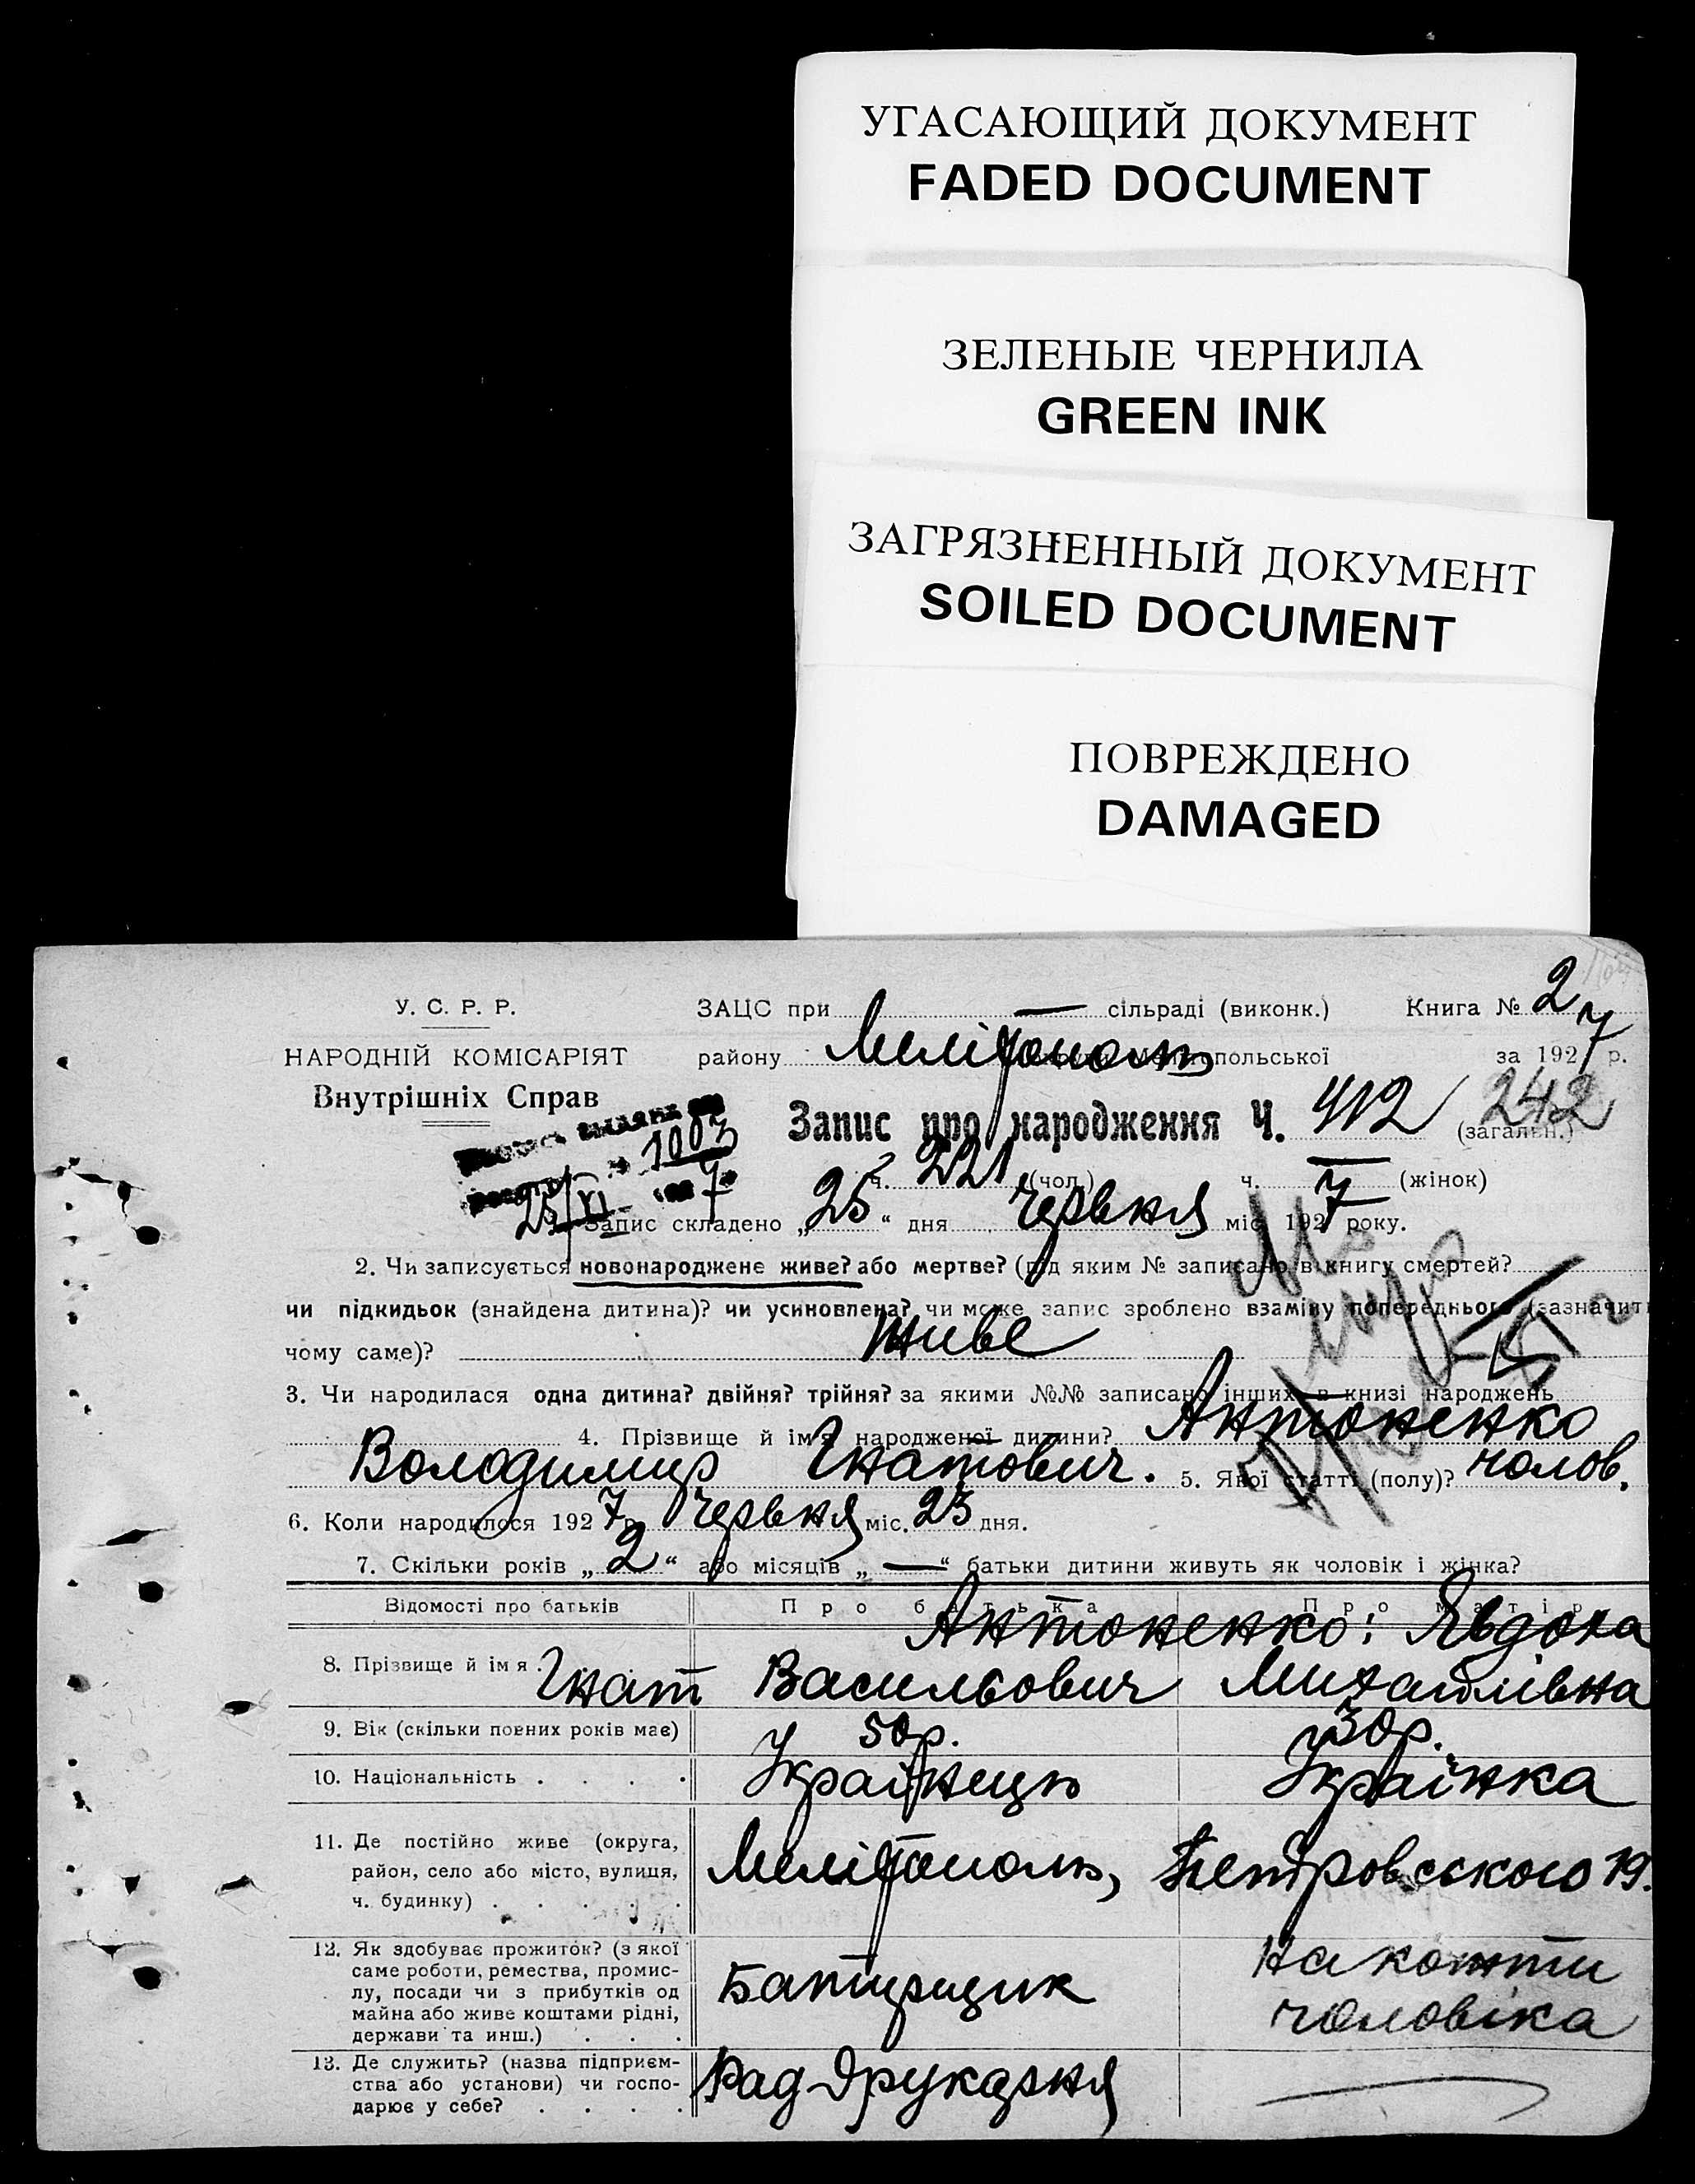 УГАСАЮЩИЙ ДОКУМЕНТ
FADED DOCUMENT
ЗЕЛЕНЫЕ ЧЕРНИЛА
GREEN INK
ЗАГРЯЗНЕННЫЙ ДОКУМЕНТ
SOILED DOCUMENT
ПОВРЕЖДЕНО
DAMAGED
У. С. Р. Р.
НАРОДНІЙ КОМІСАРІЯТ
Внутрішніх Справ
ЗАЦС при — сільраді (виконк.) Книга № 2
району Мелітополь округи Мелітопольської за 1927 р.
Запис про народження Ч. 412 242 (загальн.)
1003
25/VI 7
ч. 221 (чол.) ч. — (жінок)
Запис складено „25“ дня червня міс. 1927 року.
2. Чи записується новонароджене живе? або мертве? (під яким № записано в книгу смертей?
чи підкидьок (знайдена дитина)? чи усиновлена? чи може запис зроблено взаміну попереднього (зазначити
чому саме)? живе
3. Чи народилася одна дитина? двійня? трійня? за якими №№ записано інших в книзі народжень
— 4. Прізвище й ім'я народженої дитини? Антоненко
Володимир Гнатович. 5. Якої статті (полу)? чолов.
6. Коли народилося 1927 р. червня міс. 23 дня.
7. Скільки років „2“ або місяців „—“ батьки дитини живуть як чоловік і жінка?
Відомості про батьків Про батька Про матір
Антоненко: Явдоха
8. Прізвище й імя . Гнат Васильович Михайлівна
9. Вік (скільки повних років має) 50р. 30р.
10. Національність . . . . Українець Українка
11. Де постійно живе (округа,
район, село або місто, вулиця,
ч. будинку) . . . . .
Мелітополь, Петровського 19.
12. Як здобуває прожиток? (з якої
саме роботи, ремества, промис-
лу, посади чи з прибутків од
майна або живе коштами рідні,
держави та инш.) . . .
на кошти
чоловіка
13. Де служить? (назва підприєм-
ства або установи) чи госпо-
дарює у себе? . . . .
Рад Друкарня